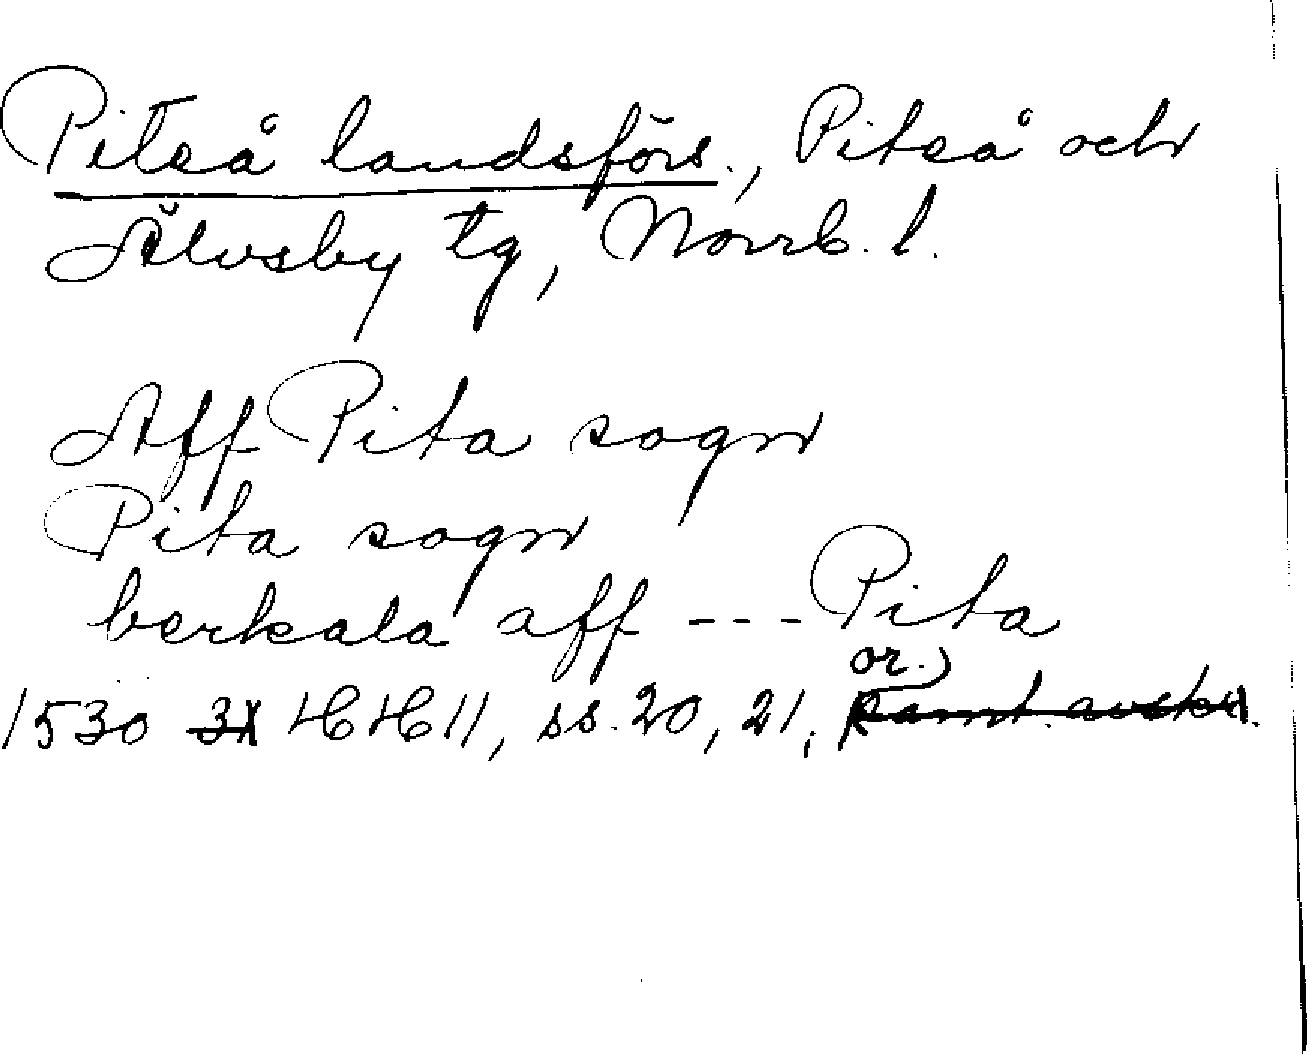 Piteå landsförs., Piteå och
Älvsby tg, Norrb. l.
Aff Pita sogn
Pita sogn
berkala aff --- Pita
or.)
1530 31 HH 11, ss. 20, 21, samt. avskr.